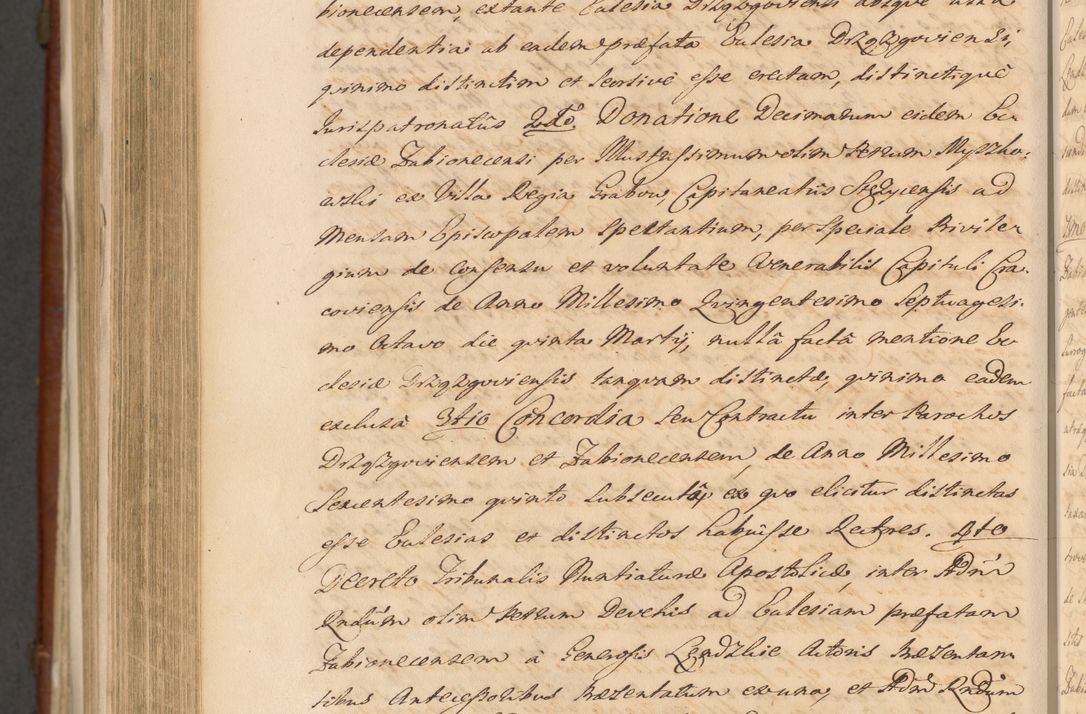 bionecensem, extante Eclesia Drzązgoviensi absque ulla
dependentia ab eadem præfata Eclesia Drzązgoviensi,
quinimo distinctim et seorsivè esse erectam, distinctiquè
Jurispatronatûs 2dõ Donatione Decimarum eidem Ec
clesiæ Żabionecensi per Illustrissimum olim Petrum Myszko:
wski ex Villa Regia Grabow, Capitaneatûs Stężycensis ad
Mensam Episcopalem spectantium, per speciale Privile
gium de Consensu et voluntate Venerabilis Capituli Cra.
coviensis de Anno Millesimo Quingentesimo Septuagesi.
mo Octavo die quinta Martij, nullâ factâ mentione Ec
clesiæ Drzązgoviensis tanquam distinctæ, quinimo eâdem
exclusâ 3tio Concordia seu Contractu inter Parochos
Drzązgoviensem et Żabionecensem, de Anno Millesimo
Sexcentesimo quinto subsecutâ, ex quo elicitur distinctas
esse Eclesias et distinctos habuisse Rectores. 4to
Decreto Tribunalis Nuntiaturæ Apostolicæ, inter Adm̃
Rndũm olim Petrum Devehis ad Eclesiam præfatam
Żabionecensem à Generosis Lendzkie Actoris Præsentan
tibus Antecessoribus Præsentatum ex una, et Adm̃ Rndũm